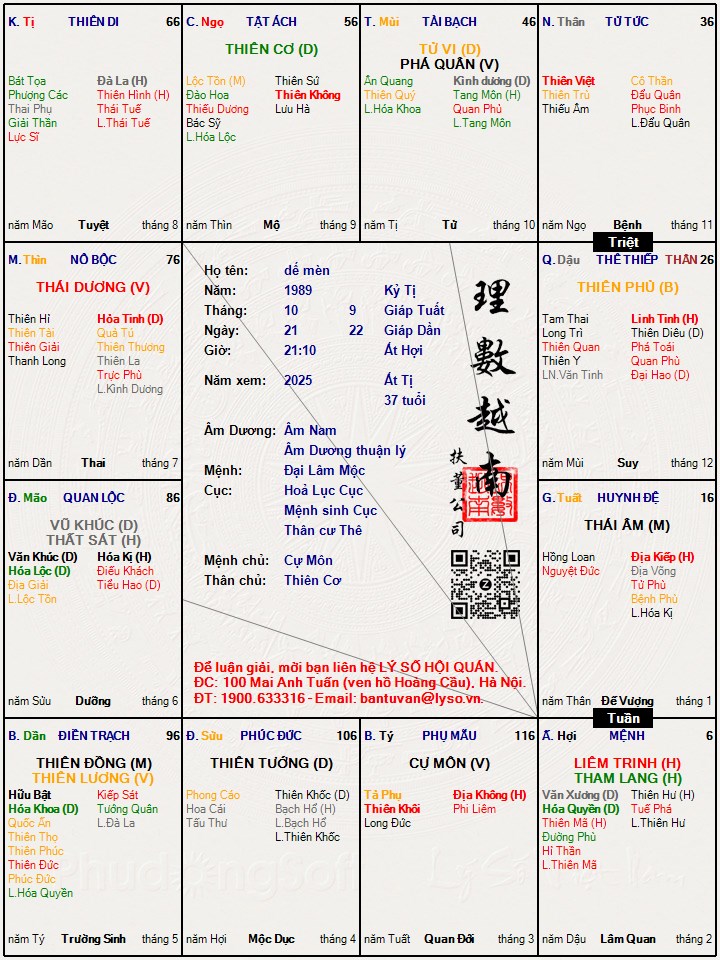 K. Tị THIÊN DI 66
Bát Tọa Đà La (H)
Phượng Các Thiên Hình (H)
Thai Phụ Thái Tuế
Giải Thần L.Thái Tuế
Lực Sĩ
năm Mão Tuyệt tháng 8
C. Ngọ TẬT ÁCH 56
THIÊN CƠ (D)
Lộc Tồn (M) Thiên Sứ
Đào Hoa Thiên Không
Thiếu Dương Lưu Hà
Bác Sỹ
L.Hóa Lộc
năm Thìn Mộ tháng 9
T. Mùi TÀI BẠCH 46
TỬ VI (D)
PHÁ QUÂN (V)
Ân Quang Kình dương (D)
Thiên Quý Tang Môn (H)
L.Hóa Khoa Quan Phủ
L.Tang Môn
năm Tị Tử tháng 10
N. Thân TỬ TỨC 36
Thiên Việt Cô Thần
Thiên Trù Đẩu Quân
Thiếu Âm Phục Binh
L.Đẩu Quân
năm Ngọ Bệnh tháng 11
Triệt
M. Thìn NÔ BỘC 76
THÁI DƯƠNG (V)
Thiên Hỉ Hỏa Tinh (D)
Thiên Tài Quả Tú
Thiên Giải Thiên Thương
Thanh Long Thiên La
Trực Phù
L.Kình Dương
năm Dần Thai tháng 7
Họ tên: dế mèn
Năm: 1989 Kỷ Tị
Tháng: 10 9 Giáp Tuất
Ngày: 21 22 Giáp Dần
Giờ: 21:10 Ất Hợi
Năm xem: 2025 Ất Tị
37 tuổi
Âm Dương: Âm Nam
Âm Dương thuận lý
Mệnh: Đại Lâm Mộc
Cục: Hoả Lục Cục
Mệnh sinh Cục
Thân cư Thê
Mệnh chủ: Cự Môn
Thân chủ: Thiên Cơ
理數越南
扶董公司
Để luận giải, mời bạn liên hệ LÝ SỐ HỘI QUÁN.
ĐC: 100 Mai Anh Tuấn (ven hồ Hoàng Cầu), Hà Nội.
ĐT: 1900.633316 - Email: bantuvan@lyso.vn.
Q. Dậu THÊ THIẾP THÂN 26
THIÊN PHỦ (B)
Tam Thai Linh Tinh (H)
Long Trì Thiên Diêu (D)
Thiên Quan Phá Toái
Thiên Y Quan Phù
LN.Văn Tinh Đại Hao (D)
năm Mùi Suy tháng 12
Đ. Mão QUAN LỘC 86
VŨ KHÚC (D)
THẤT SÁT (H)
Văn Khúc (D) Hóa Kị (H)
Hóa Lộc (D) Điếu Khách
Địa Giải Tiểu Hao (D)
L.Lộc Tồn
năm Sửu Dưỡng tháng 6
G. Tuất HUYNH ĐỆ 16
THÁI ÂM (M)
Hồng Loan Địa Kiếp (H)
Nguyệt Đức Địa Võng
Tử Phù
Bệnh Phù
L.Hóa Kị
năm Thân Đế Vượng tháng 1
Tuần
B. Dần ĐIỀN TRẠCH 96
THIÊN ĐỒNG (M)
THIÊN LƯƠNG (V)
Hữu Bật Kiếp Sát
Hóa Khoa (D) Tướng Quân
Quốc Ấn L.Đà La
Thiên Thọ
Thiên Phúc
Thiên Đức
Phúc Đức
L.Hóa Quyền
năm Tý Trường Sinh tháng 5
Đ. Sửu PHÚC ĐỨC 106
THIÊN TƯỚNG (D)
Phong Cáo Thiên Khốc (D)
Hoa Cái Bạch Hổ (H)
Tấu Thư L.Bạch Hổ
L.Thiên Khốc
năm Hợi Mộc Dục tháng 4
B. Tý PHỤ MẪU 116
CỰ MÔN (V)
Tả Phụ Địa Không (H)
Thiên Khôi Phi Liêm
Long Đức
năm Tuất Quan Đới tháng 3
Ấ. Hợi MỆNH 6
LIÊM TRINH (H)
THAM LANG (H)
Văn Xương (D) Thiên Hư (H)
Hóa Quyền (D) Tuế Phá
Thiên Mã (H) L.Thiên Hư
Đường Phù
Hỉ Thần
L.Thiên Mã
năm Dậu Lâm Quan tháng 2